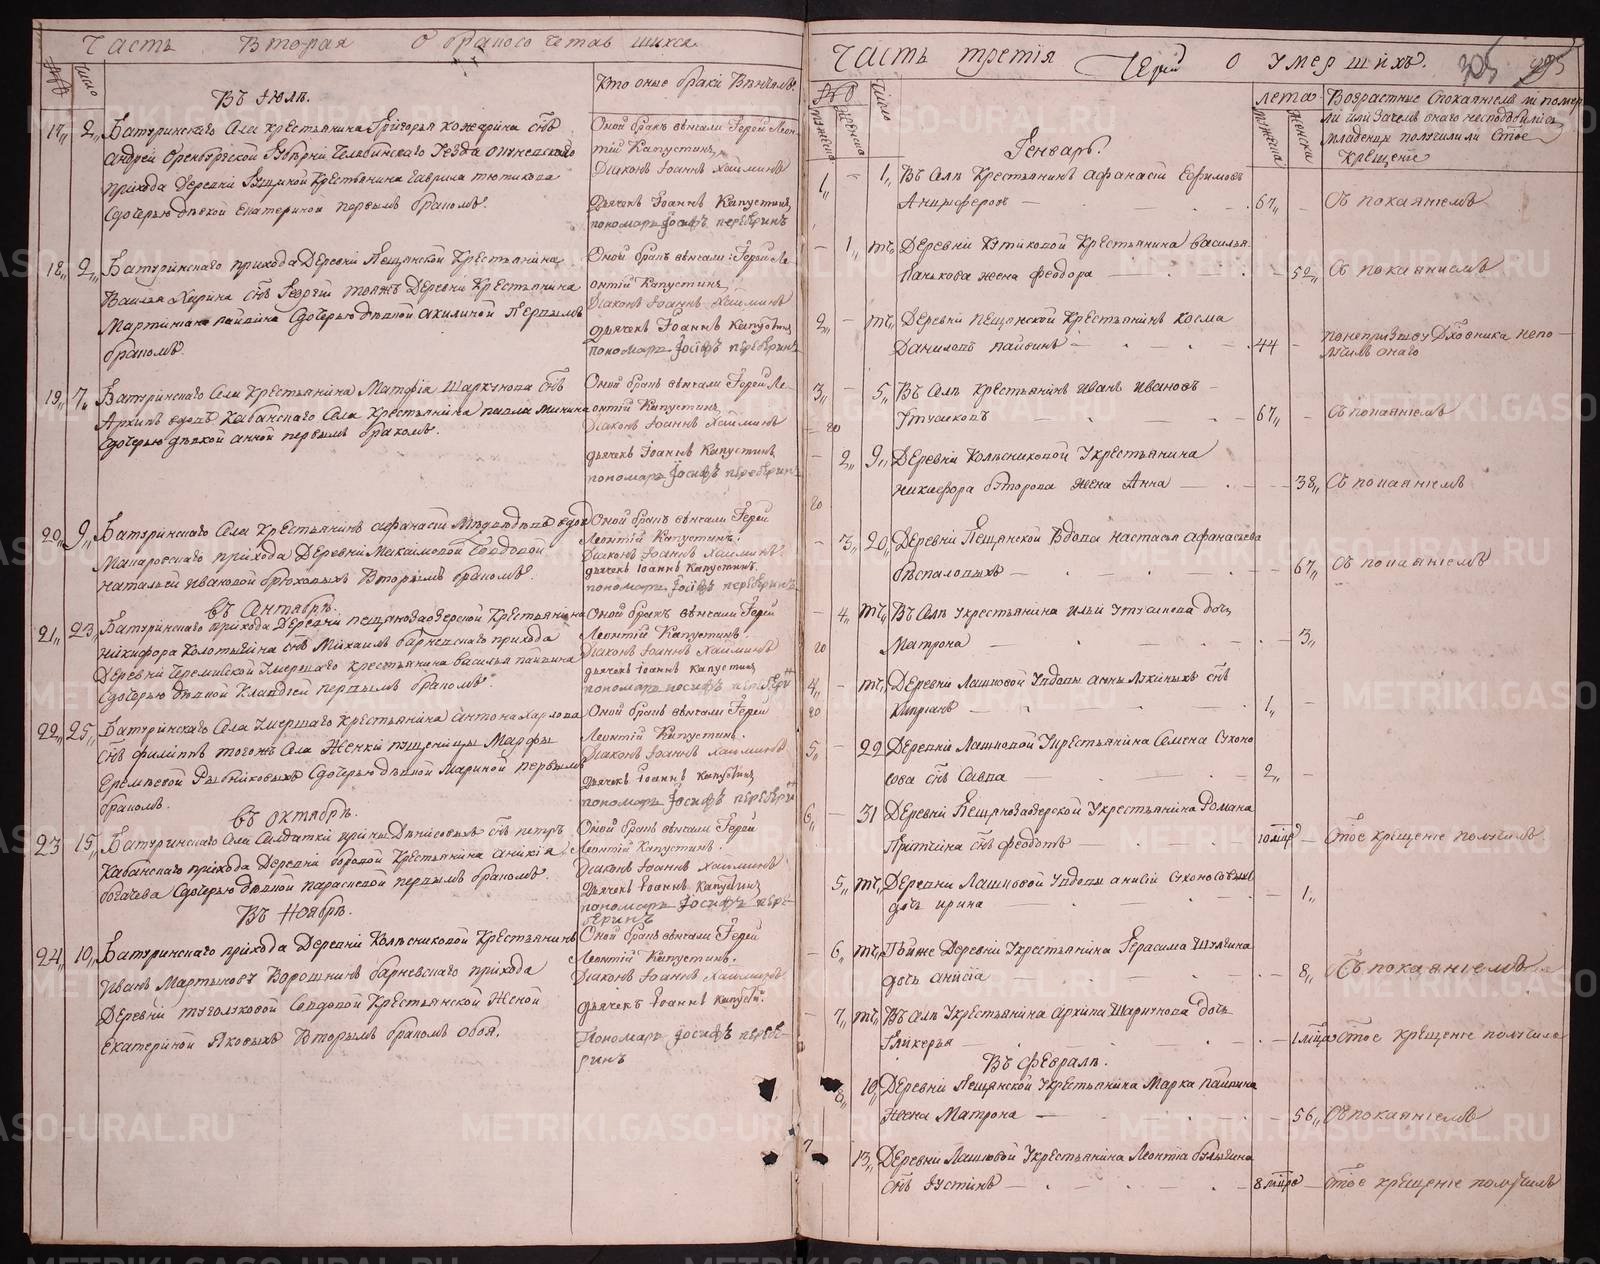 Часть Вторая О бракосочетавшихся
Число
Кто оные браки Венчалъ
Въ Іюлѣ.
17,, 2,, Батуринскаго Села крестьянина Григорья Кожарина Снъ
Андрей Оренбургской Губерніи Челябинскаго Уезда
прихода Деревни крестьянина Гаврила Тютикова
Сдочерью дѣвкой Екатериной первымъ бракомъ.
Оной бракъ венчали Іерей Леон-
тій Капустинъ,
Діаконъ Іоаннъ Хайминъ
Дьячекъ Іоаннъ Капустинъ,
пономарь Іосифъ переберинъ
18,, 2,, Батуринскаго прихода Деревни Пещанской Крестьянина
Василья Снъ Георгій тояжъ Деревни Крестьянина
Мартиніана Пайвина Сдочерью дѣвкой Акилиной Первымъ
бракомъ.
Оной бракъ венчали Іерей Ле-
онтій Капустинъ,
Діаконъ Іоаннъ Хайминъ
дьячекъ Іоаннъ Капустинъ,
пономарь Іосифъ переберинъ
19,, 7,, Батуринскаго Села Крестьянина Матфія Шаркунова Снъ
Архипъ вдовъ Кабанскаго Села Крестьянина павла Минина
Сдочерью дѣвкой Анной первымъ бракомъ.
Оной бракъ венчали Іерей Ле-
онтій Капустинъ
Діаконъ Іоаннъ Хайминъ
дьячекъ Іоаннъ Капустинъ,
пономарь Іосифъ переберинъ
20,, 9,, Батуринскаго Села Крестьянинъ Афанасій Медведевъ вдовъ
Макаровскаго прихода Деревни Максимовой Совдовой
Натальей Ивановой брюховыхъ Вторымъ бракомъ.
Оной бракъ венчали Іерей
Леонтій Капустинъ.
Діаконъ Іоаннъ Хайминъ
дьячекъ Іоаннъ Капустинъ.
пономарь Іосифъ переберинъ
въ Сентябрѣ.
21,, 23,, Батуринскаго прихода Деревни пещановаозерской Крестьянина
Никифора Колотыгина снъ Михаилъ барневскаго прихода
Деревни Умершаго крестьянина василья пайвина
Сдочерью дѣвкой Клавдіей первымъ бракомъ.
Оной бракъ венчали Іерей
Леонтій Капустинъ.
Діаконъ Іоаннъ Хайминъ
дьячекъ Іоаннъ Капустинъ
пономарь Іосифъ перебери-
22,, 25,, Батуринскаго Села Умершаго крестьянина Антона Харлова
Снъ филиппъ тогожъ Села Женки Марфы
Еремѣевой Рыбниковыхъ Сдочерью дѣвкой Мариной первымъ
бракомъ.
Оной бракъ венчали Іерей
Леонтій Капустинъ.
Діаконъ Іоаннъ Хайминъ
Дьячекъ Іоаннъ Капустинъ
пономарь Іосифъ перебери-
въ октябрѣ.
23 15,, Батуринскаго Села Салдатки Денисовыхъ снъ петръ
Кабанскаго прихода Деревни боровой Крестьянина Аникія
богачева Сдочерью дѣвкой параскевой первымъ бракомъ.
Оной бракъ венчали Іерей
Леонтій Капустинъ.
Діаконъ Іоаннъ Хайминъ
Дьячекъ Іоаннъ Капустинъ,
пономарь Іосифъ пере-
беринъ
Въ Ноябрѣ.
24,, 10,, Батуринскаго прихода Деревни Колѣсниковой Крестьянинъ
Иванъ Мартыновъ Ворошнинъ барневскаго прихода
Деревни Совдовой Крестьянской Женой
Екатериной Яковыхъ Вторымъ бракомъ Обоя.
Оной бракъ венчали Іерей
Леонтій Капустинъ.
Діаконъ Іоаннъ Хайминъ
дьячекъ Іоаннъ Капусти.
Пономарь Іосифъ перебе-
ринъ
Часть третія О умершихъ. 305
число
лета
мужеска женска
Возрастные Спокаяніемъ ли померли
или зачемъ онаго несподобилися
младенцы получилили Стое
Крещеніе
Генварь.
1,, - 1,, Въ Селѣ Крестьянинъ Афанасій Ефимовъ
Анцыферовъ 67,, Съ покаяніемъ
- 1,, тч, Деревни Кутиковой Крестьянина василья
Панькова жена феодора 52,, Съ покаяніемъ
2,, - тч, Деревни Пещанской Крестьянинъ Косма
Даниловъ пайвинъ 44 понепризыву Дховника непо-
лучилъ онаго
3,, - 5,, Въ Селѣ крестьянинъ Иванъ Ивановъ
Утусиковъ 67,, Съ покаяніемъ
- 2,, 9,, Деревни Колѣсниковой Укрестьянина
Никифора буторова жена Анна 38,, Съ покаяніемъ
- 3,, 20,, Деревни Пещанской Вдова Настасья Афанасьева
бѣспаловыхъ 67,, Съ покаяніемъ
- 4,, тч, Въ Селѣ Укрестьянина Ильи Утусикова дочь
Матрона 3,,
4,, - тч, Деревни Лашковой Увдовы Анны Лукиныхъ снъ
Кипріанъ 1,,
5,, - 22 Деревни Лашковой Укрестьянина Семена Сухоно
сова снъ Савва 2,,
6,, - 31 Деревни Пещановаозерской Укрестьянина Романа
Притчина снъ феодотъ 10 мцъ Стое крещеніе получилъ
- 5,, тч, Деревни Лашковой Увдовы Анисіи Сухоносовыхъ
дочь Ирина 1,,
- 6,, тч, Тояже Деревни Укрестьянина Герасима Шулгина
дочь Анисія 8,, Съ покаяніемъ
- 7,, тч, Въ Селѣ Укрестьянина Архипа Шаркунова дочь
Гликерья 1 мца Стое крещеніе получила
Въ февралѣ.
8,, 10,, Деревни Пещанской Укрестьянина Марка Пайвина
жена Матрона 56,, Съ покаяніемъ
7 13,, Деревни Лашковой Укрестьянина Леонтія булыгина
снъ Іустинъ 8 мцъ Стое крещеніе получилъ
METRIKI.GASO-URAL.RU